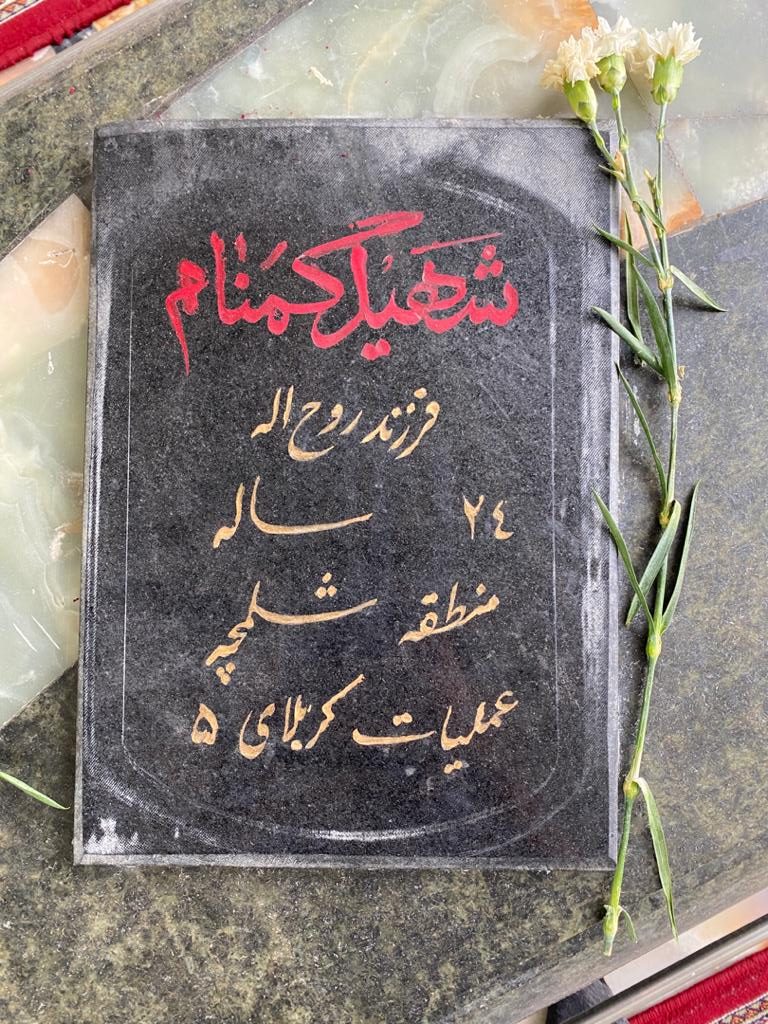 شهید گمنام
فرزند روح اله
٢٤ ساله
منطقه شلمچه
عملیات کربلای ۵